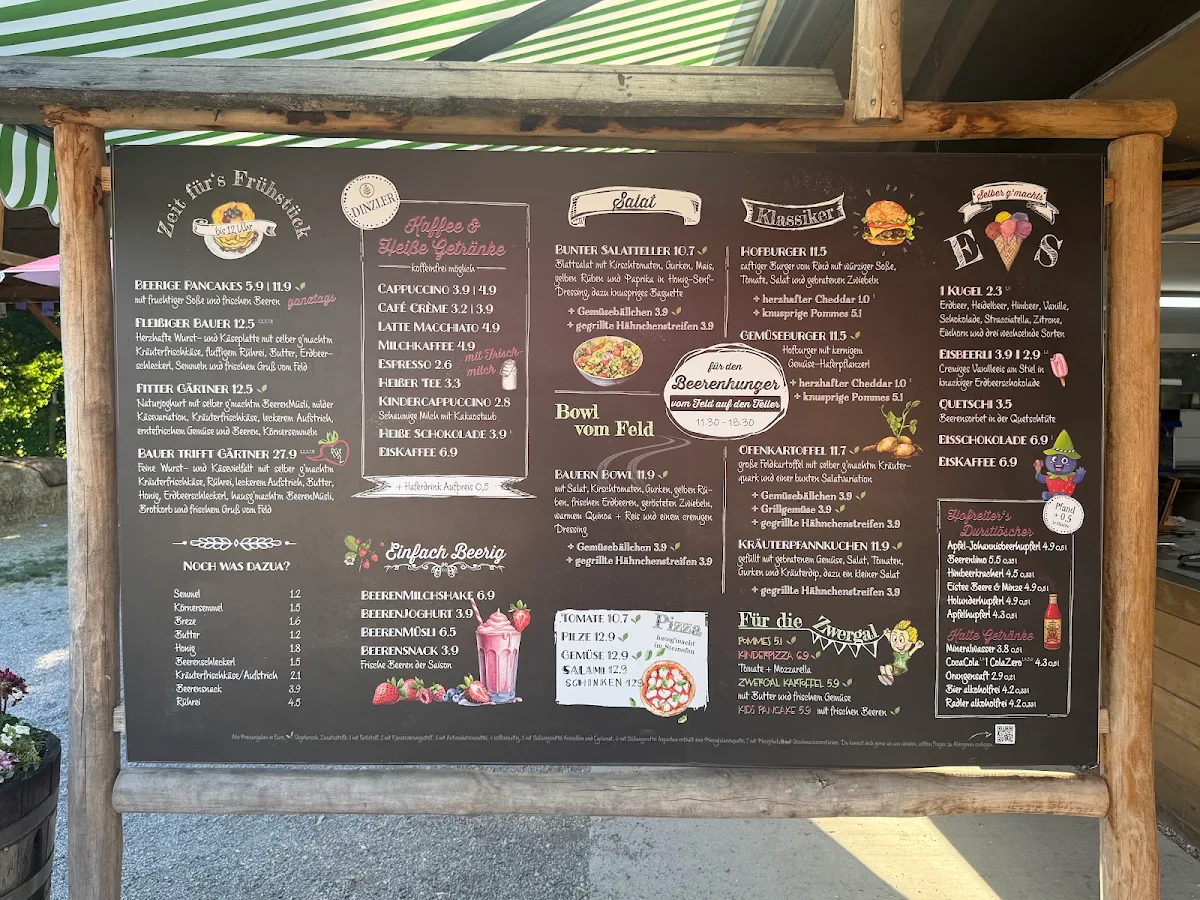 Zeit für's Frühstück
bis 12 Uhr
BEERIGE PANCAKES 5.9 | 11.9
mit fruchtiger Soße und frischen Beeren ganztags
FLEIßIGER BAUER 12.5
Herzhafte Wurst- und Käseplatte mit selber g'machtm
Kräuterfrischkäse, fluffigem Rührei, Butter, Erdbeer-
schleckerl, Semmeln und frischem Gruß vom Feld
FITTER GÄRTNER 12.5
Naturjoghurt mit selber g'machtm BeerenMüsli, milder
Käsevariation, Kräuterfrischkäse, leckerem Aufstrich,
erntefrischem Gemüse und Beeren, Körnersemmeln
BAUER TRIFFT GÄRTNER 27.9
für 2
Feine Wurst- und Käsevielfalt mit selber g'machtm
Kräuterfrischkäse, Rührei, leckerem Aufstrich, Butter,
Honig, Erdbeerschleckerl, hausg'machtm BeerenMüsli,
Brotkorb und frischem Gruß vom Feld
NOCH WAS DAZUA?
Semmel 1.2
Körnersemmel 1.5
Breze 1.6
Butter 1.2
Honig 1.8
Beerenschleckerl 1.5
Kräuterfrischkäse/Aufstrich 2.1
Beerensnack 3.9
Rührei 4.5
DINZLER
Kaffee &
Heiße Getränke
koffeinfrei möglich
CAPPUCCINO 3.9 | 4.9
CAFÉ CRÈME 3.2 | 3.9
LATTE MACCHIATO 4.9
MILCHKAFFEE 4.9
ESPRESSO 2.6
mit Frisch-
milch
HEIßER TEE 3.3
KINDERCAPPUCCINO 2.8
Schaumige Milch mit Kakaostaub
HEIßE SCHOKOLADE 3.9
EISKAFFEE 6.9
+ Haferdrink Aufpreis 0,5
Einfach Beerig
BEERENMILCHSHAKE 6.9
BEERENJOGHURT 3.9
BEERENMÜSLI 6.5
BEERENSNACK 3.9
Frische Beeren der Saison
Salat
BUNTER SALATTELLER 10.7
Blattsalat mit Kirschtomaten, Gurken, Mais,
gelben Rüben und Paprika in Honig-Senf-
Dressing, dazu knuspriges Baguette
+ Gemüsebällchen 3.9
+ gegrillte Hähnchenstreifen 3.9
Bowl
vom Feld
BAUERN BOWL 11.9
mit Salat, Kirschtomaten, Gurken, gelben Rü-
ben, frischen Erdbeeren, gerösteten Zwiebeln,
warmen Quinoa + Reis und einem cremigen
Dressing
+ Gemüsebällchen 3.9
+ gegrillte Hähnchenstreifen 3.9
Pizza
hausg'macht
im Steinofen
TOMATE 10.7
PILZE 12.9
GEMÜSE 12.9
SALAMI 12.9
SCHINKEN 12.9
für den
Beerenhunger
vom Feld auf den Teller
11.30 - 18.30
Klassiker
HOFBURGER 11.5
saftiger Burger vom Rind mit würziger Soße,
Tomate, Salat und gebratenen Zwiebeln
+ herzhafter Cheddar 1.0
+ knusprige Pommes 5.1
GEMÜSEBURGER 11.5
Hofburger mit kernigem
Gemüse-Haferpflanzerl
+ herzhafter Cheddar 1.0
+ knusprige Pommes 5.1
OFENKARTOFFEL 11.7
große Feldkartoffel mit selber g'machtm Kräuter-
quark und einer bunten Salatvariation
+ Gemüsebällchen 3.9
+ Grillgemüse 3.9
+ gegrillte Hähnchenstreifen 3.9
KRÄUTERPFANNKUCHEN 11.9
gefüllt mit gebratenem Gemüse, Salat, Tomaten,
Gurken und Kräuterdip, dazu ein kleiner Salat
+ gegrillte Hähnchenstreifen 3.9
Für die Zwergal
POMMES 5.1
KINDERPIZZA 6.9
Tomate + Mozzarella
ZWERGAL KARTOFFEL 5.9
mit Butter und frischem Gemüse
KIDS PANCAKE 5.9 mit frischen Beeren
Selber g'machts
EIS
1 KUGEL 2.3
Erdbeer, Heidelbeer, Himbeer, Vanille,
Schokolade, Stracciatella, Zitrone,
Einhorn und drei wechselnde Sorten
EISBEERLI 3.9 | 2.9
Cremiges Vanilleeis am Stiel in
knackiger Erdbeerschokolade
QUETSCHI 3.5
Beerensorbet in der Quetschtüte
EISSCHOKOLADE 6.9
EISKAFFEE 6.9
Pfand
+ 0,5
Hofreiter's
Durstlöscher
Apfel-Johannisbeerhupferl 4.9 0,5l
Beerenlimo 5.5 0,33l
Himbeerkracherl 4.5 0,33l
Eistee Beere & Minze 4.9 0,5l
Holunderhupferl 4.9 0,5l
Apfelhupferl 4.3 0,5l
Kalte Getränke
Mineralwasser 3.8 0,5l
CocaCola | ColaZero 4.3 0,5l
Orangensaft 2.9 0,2l
Bier alkoholfrei 4.2 0,33l
Radler alkoholfrei 4.2 0,33l
Alle Preisangaben in Euro.